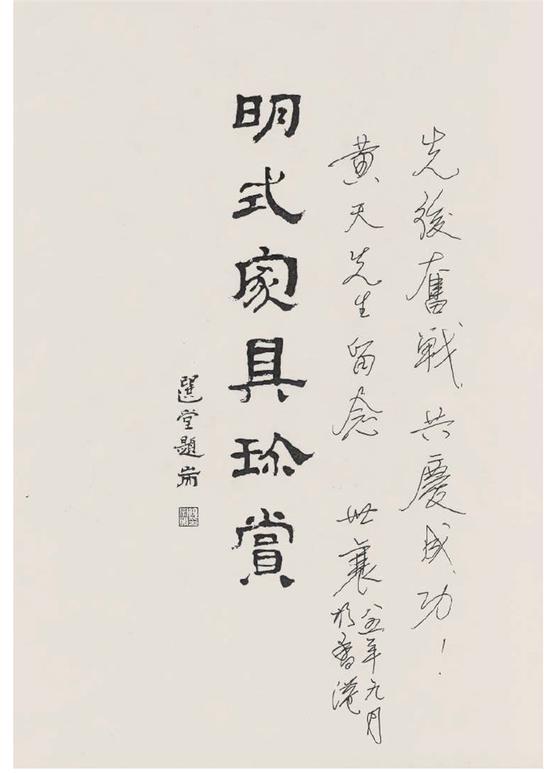 先後奮戰，共慶成功！
黄天先生留念 世襄
八五年九月
於香港
明式家具珍賞
選堂題耑